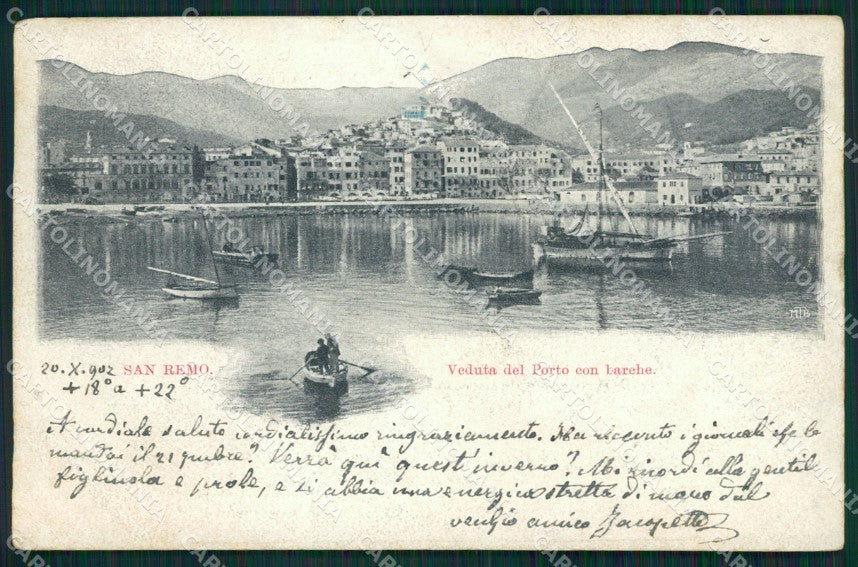 20. X. 902 SAN REMO. Veduta del Porto con barche.
+ 18° a + 22°
A cordiale saluto cordialissimo ringraziamento. Ha ricevuto i giornali che le
mandai il 21 7mbre? Verrà qui quest'inverno? Mi ricordi alla gentile
figliuola e prole, e si abbia una energica stretta di mano dal
vecchio amico Jacopetti
CARTOLINOMANIA